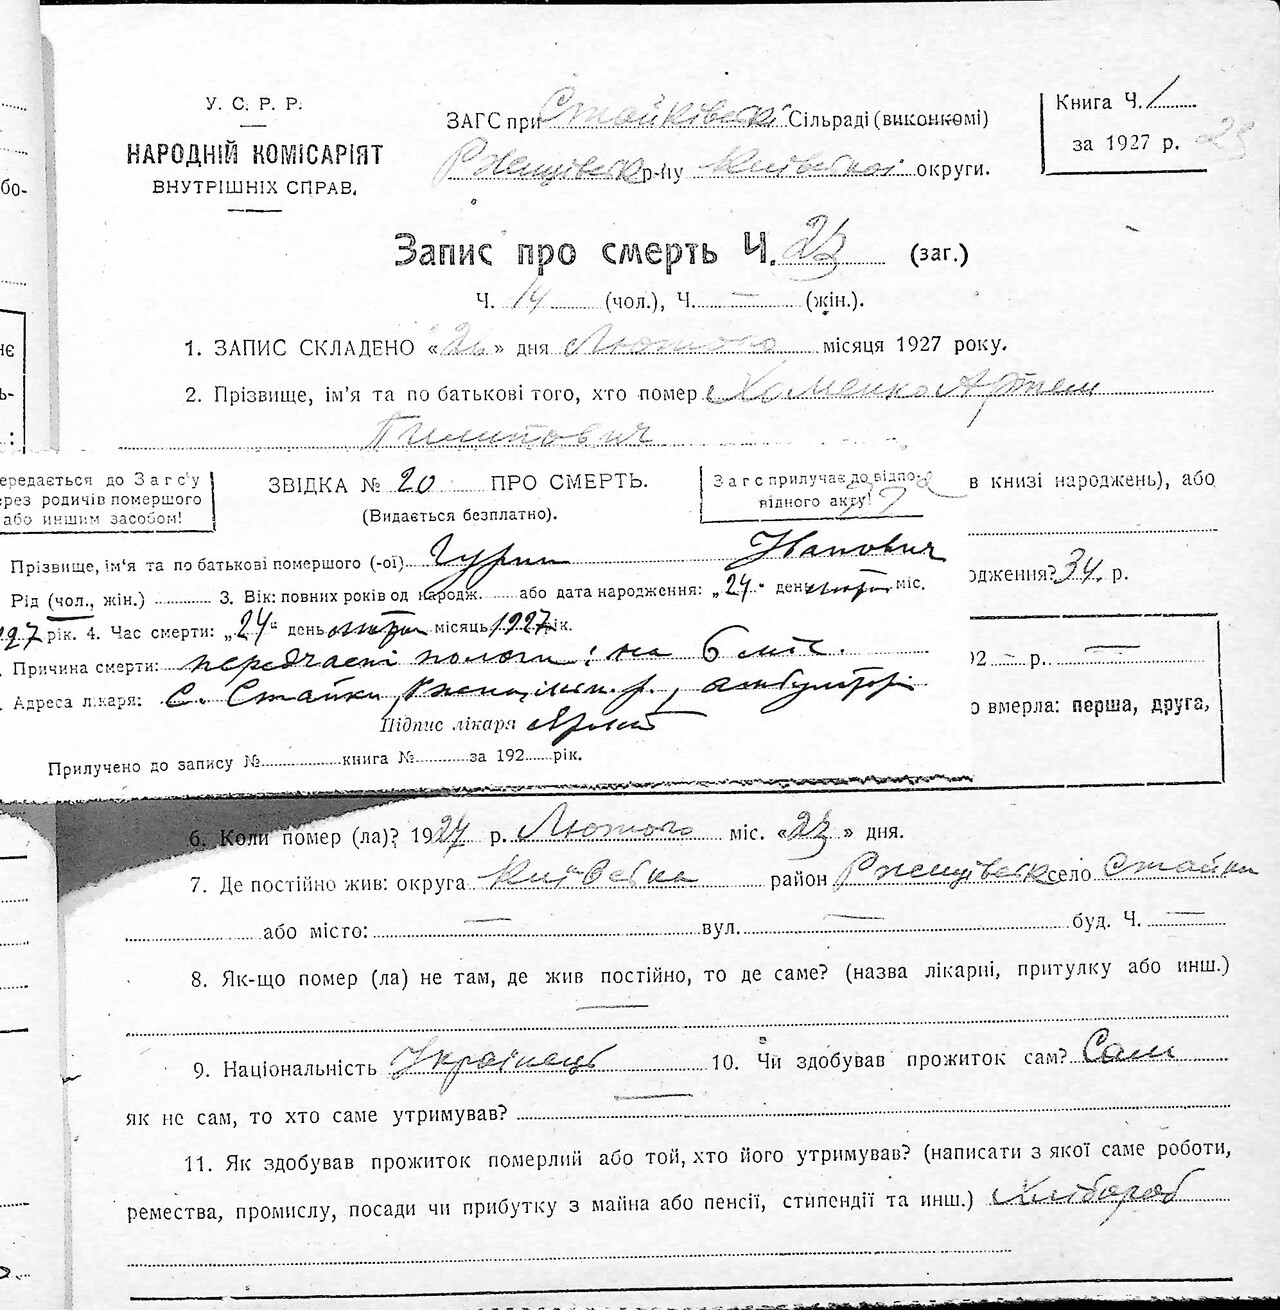 У. С. Р. Р.
НАРОДНІЙ КОМІСАРІЯТ
ВНУТРІШНІХ СПРАВ.
ЗАГС при Стайківській Сільраді (виконкомі)
Ржищівськ р-ну Київської округи.
Книга Ч. 1
за 1927 р.
23
Запис про смерть Ч. 23 (заг.)
Ч. 14 (чол.), Ч. — (жін.).
1. ЗАПИС СКЛАДЕНО «26» дня Лютого місяця 1927 року.
2. Прізвище, ім'я та по батькові того, хто помер Хоменко Артем
Пилипович
ередається до Загс'у
ерез родичів помершого
або иншим засобом!
ЗВІДКА № 20 ПРО СМЕРТЬ.
(Видається безплатно).
Загс прилучає до відпо-
відного акту!
в книзі народжень), або
Прізвище, ім'я та по батькові помершого (-ої) Іванович
одження? 34. р.
Рід (чол., жін.) 3. Вік: повних років од народж. або дата народження: „24" день міс.
927 рік. 4. Час смерти: „24" день місяць 1927 рік.
Причина смерти: передчасні пологи: на 6 міс.
92 — р. —
Адреса лікаря: С. Стайки, р., амбуляторія
о вмерла: перша, друга,
Підпис лікаря
Прилучено до запису № книга № за 192 рік.
6. Коли помер (ла)? 1927 р. Лютого міс. «23» дня.
7. Де постійно жив: округа Київська район Ржищівськ село Стайки
або місто: — вул. — буд. Ч. —
8. Як-що помер (ла) не там, де жив постійно, то де саме? (назва лікарні, притулку або инш.)
—
9. Національність Українець 10. Чи здобував прожиток сам? Сам
як не сам, то хто саме утримував? —
11. Як здобував прожиток померлий або той, хто його утримував? (написати з якої саме роботи,
ремества, промислу, посади чи прибутку з майна або пенсії, стипендії та инш.) Хлібороб